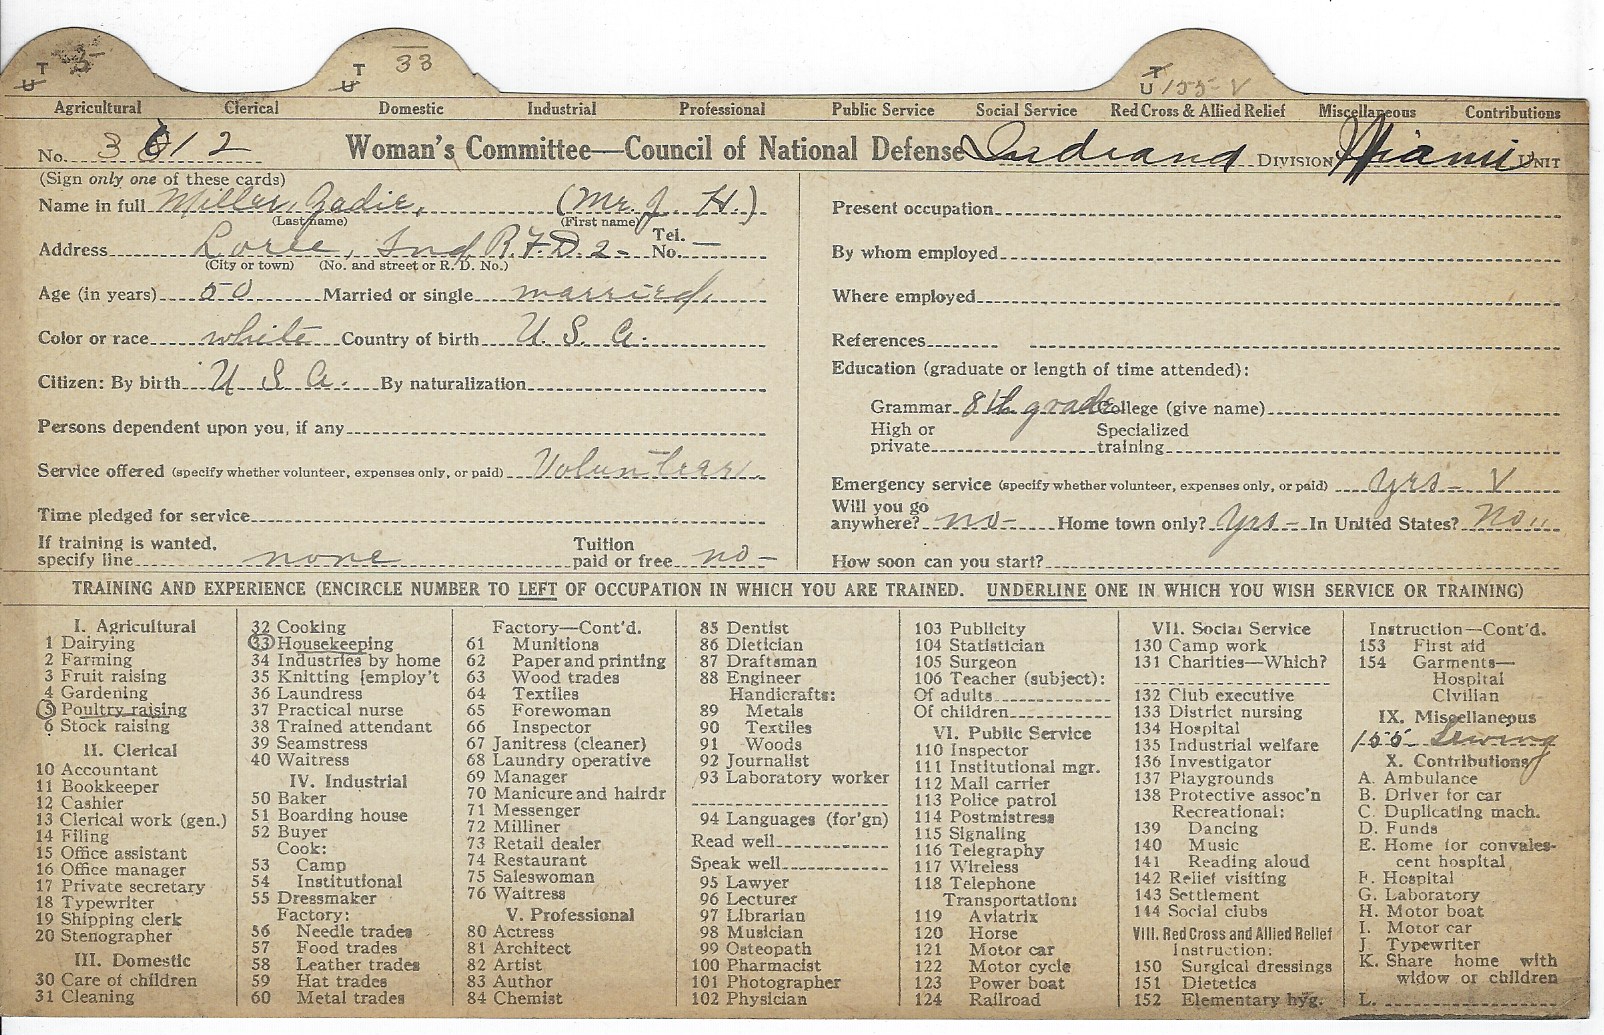 T U 5 T U 33 T U 155 V
Agricultural Clerical Domestic Industrial Professional Public Service Social Service Red Cross & Allied Relief Miscellaneous Contributions
No. 3612 Woman's Committee—Council of National Defense Indiana DIVISION Miami UNIT
(Sign only one of these cards)
Name in full Miller, Zadie, (Mr. J. H.)
(Last name) (First name)
Address Loree, Ind R.F.D. 2 - Tel. No. —
(City or town) (No. and street or R. D. No.)
Age (in years) 50 Married or single married,
Color or race white Country of birth U. S. A.
Citizen: By birth U S A. By naturalization
Persons dependent upon you, if any
Service offered (specify whether volunteer, expenses only, or paid) Volunteer
Time pledged for service
If training is wanted, specify line none Tuition paid or free no -
Present occupation
By whom employed
Where employed
References
Education (graduate or length of time attended):
Grammar 8th grade College (give name)
High or private Specialized training
Emergency service (specify whether volunteer, expenses only, or paid) yes - V
Will you go anywhere? no - Home town only? yes - In United States? No
How soon can you start?
TRAINING AND EXPERIENCE (ENCIRCLE NUMBER TO LEFT OF OCCUPATION IN WHICH YOU ARE TRAINED. UNDERLINE ONE IN WHICH YOU WISH SERVICE OR TRAINING)
I. Agricultural
1 Dairying
2 Farming
3 Fruit raising
4 Gardening
5 Poultry raising
6 Stock raising
II. Clerical
10 Accountant
11 Bookkeeper
12 Cashier
13 Clerical work (gen.)
14 Filing
15 Office assistant
16 Office manager
17 Private secretary
18 Typewriter
19 Shipping clerk
20 Stenographer
III. Domestic
30 Care of children
31 Cleaning
32 Cooking
33 Housekeeping
34 Industries by home
35 Knitting [employ't
36 Laundress
37 Practical nurse
38 Trained attendant
39 Seamstress
40 Waitress
IV. Industrial
50 Baker
51 Boarding house
52 Buyer
Cook:
53 Camp
54 Institutional
55 Dressmaker
Factory:
56 Needle trades
57 Food trades
58 Leather trades
59 Hat trades
60 Metal trades
Factory—Cont'd.
61 Munitions
62 Paper and printing
63 Wood trades
64 Textiles
65 Forewoman
66 Inspector
67 Janitress (cleaner)
68 Laundry operative
69 Manager
70 Manicure and hairdr
71 Messenger
72 Milliner
73 Retail dealer
74 Restaurant
75 Saleswoman
76 Waitress
V. Professional
80 Actress
81 Architect
82 Artist
83 Author
84 Chemist
85 Dentist
86 Dietician
87 Draftsman
88 Engineer
Handicrafts:
89 Metals
90 Textiles
91 Woods
92 Journalist
93 Laboratory worker
94 Languages (for'gn)
Read well
Speak well
95 Lawyer
96 Lecturer
97 Librarian
98 Musician
99 Osteopath
100 Pharmacist
101 Photographer
102 Physician
103 Publicity
104 Statistician
105 Surgeon
106 Teacher (subject):
Of adults
Of children
VI. Public Service
110 Inspector
111 Institutional mgr.
112 Mail carrier
113 Police patrol
114 Postmistress
115 Signaling
116 Telegraphy
117 Wireless
118 Telephone
Transportation:
119 Aviatrix
120 Horse
121 Motor car
122 Motor cycle
123 Power boat
124 Railroad
VII. Social Service
130 Camp work
131 Charities—Which?
132 Club executive
133 District nursing
134 Hospital
135 Industrial welfare
136 Investigator
137 Playgrounds
138 Protective assoc'n
Recreational:
139 Dancing
140 Music
141 Reading aloud
142 Relief visiting
143 Settlement
144 Social clubs
VIII. Red Cross and Allied Relief
Instruction:
150 Surgical dressings
151 Dietetics
152 Elementary hyg.
Instruction—Cont'd.
153 First aid
154 Garments—
Hospital
Civilian
IX. Miscellaneous
155 Sewing
X. Contributions
A. Ambulance
B. Driver for car
C. Duplicating mach.
D. Funds
E. Home for convales-
cent hospital
F. Hospital
G. Laboratory
H. Motor boat
I. Motor car
J. Typewriter
K. Share home with
widow or children
L.